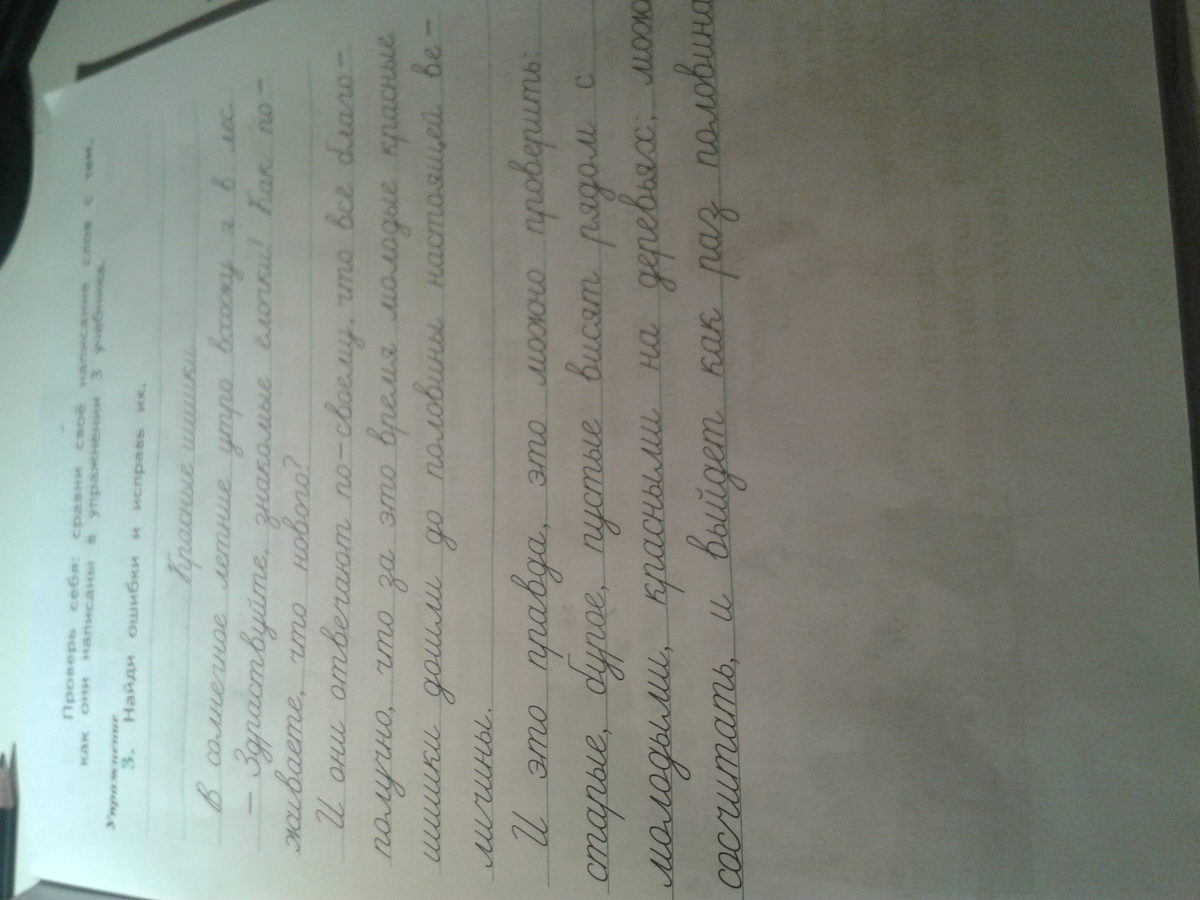 Проверь себя: сравни своё написание слов с тем,
как они написаны в упражнении 3 учебника.
Упражнение
3. Найди ошибки и исправь их.
Красные шишки
В солнечное летние утро вхожу я в лес.
– Здраствуйте, знакомые елочки! Как по-
живаете, что нового?
И они отвечают по-своему, что всё благо-
получно, что за это время молодые красные
шишки дошли до половины настоящей ве-
личины.
И это правда, это можно проверить:
старые, бурое, пустые висят рядом с
молодыми, красными на деревьях: можн
сосчитать, и выйдет как раз половина